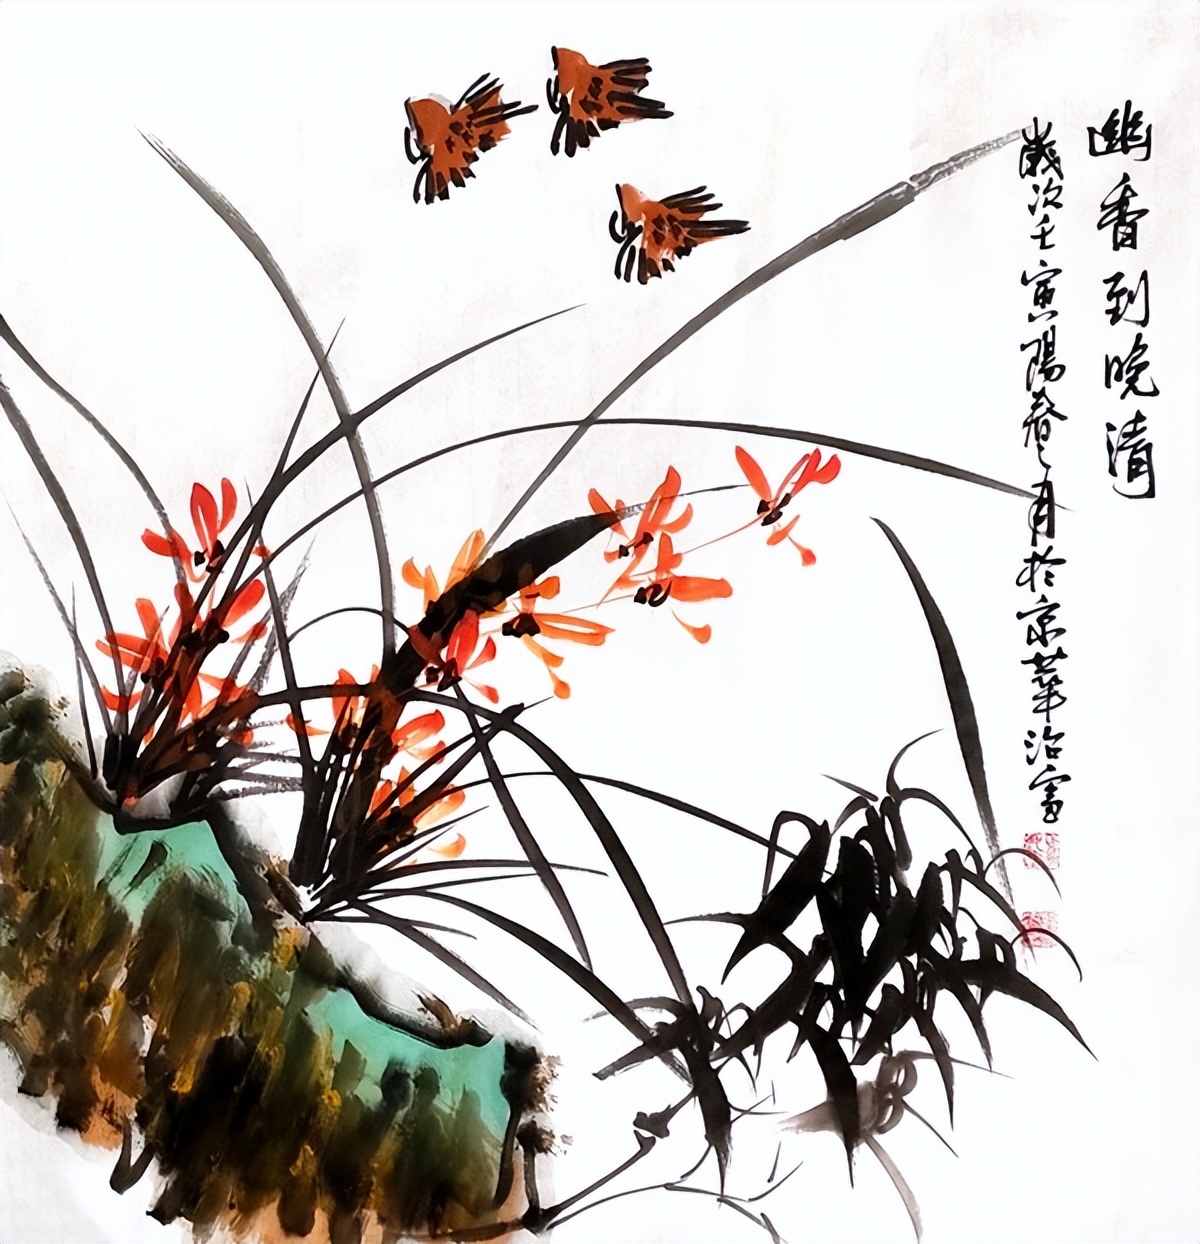 幽香到晚清
歲次壬寅陽春之月於京華治富